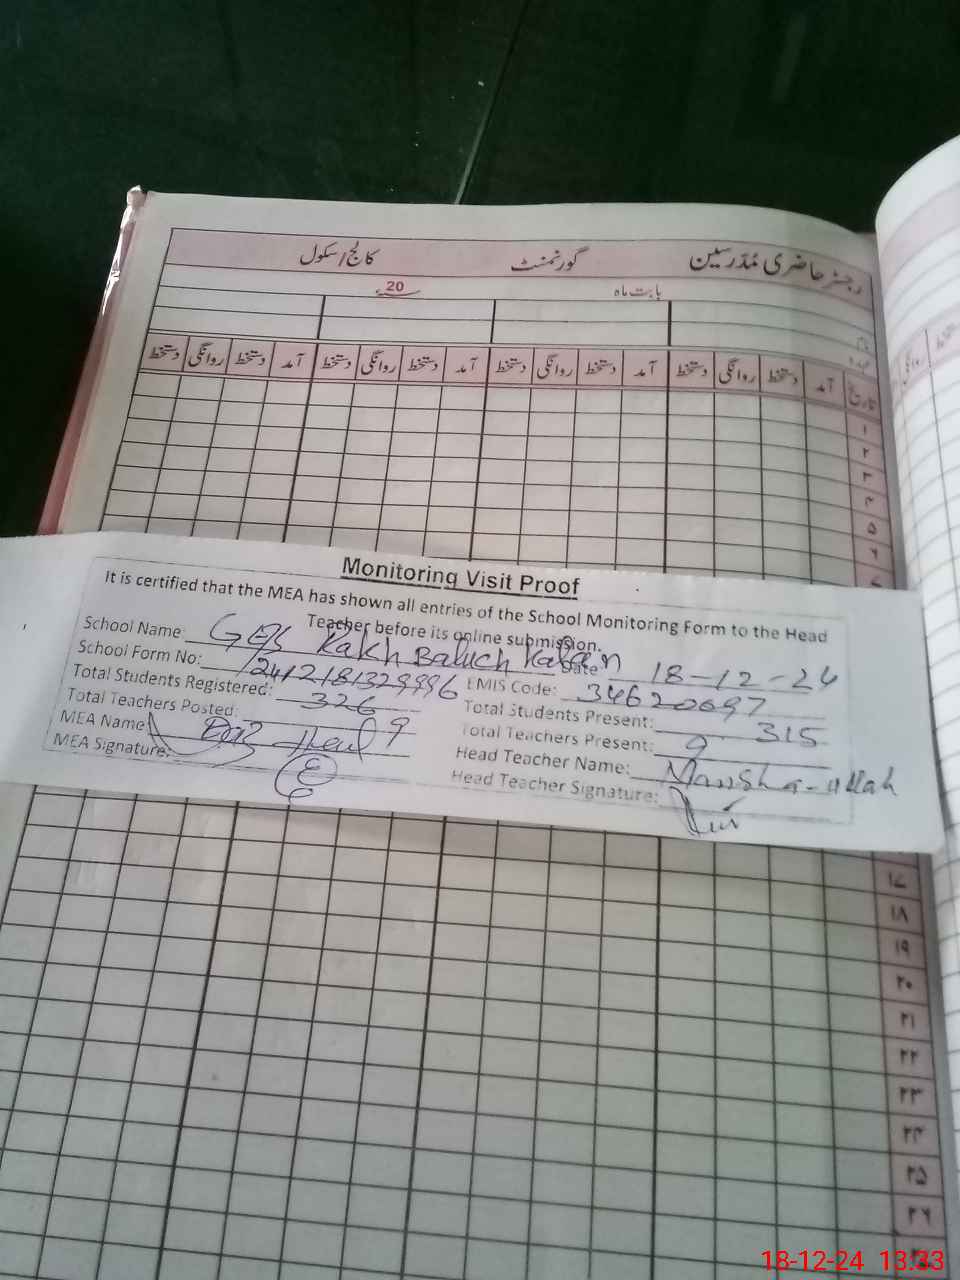 رجسٹر حاضری مُدرسین گورنمنٹ کالج/سکول
بابت ماہ 20
تاریخ آمد دستخط روانگی دستخط آمد دستخط روانگی دستخط آمد دستخط روانگی دستخط آمد دستخط روانگی دستخط
۱
۲
۳
۴
۵
۶
Monitoring Visit Proof
It is certified that the MEA has shown all entries of the School Monitoring Form to the Head
Teacher before its online submission.
School Name: Rakh Baluch Kalan Date 18-12-24
School Form No: 12412181329996 EMIS Code: 34620097
Total Students Registered: 326 Total Students Present: 315
Total Teachers Posted: 9 Total Teachers Present: 9
MEA Name: Head Teacher Name: Mansha-Ullah
MEA Signature: Head Teacher Signature:
۱۷
۱۸
۱۹
۲۰
۲۱
۲۲
۲۳
۲۴
۲۵
۲۶
18-12-24 13:33